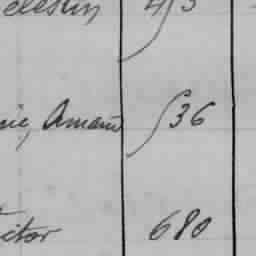 elestin 453
nie, Amand 536
ictor 680